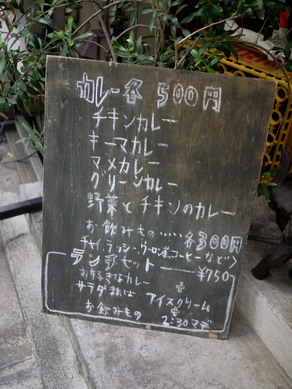 カレー各 500円
チキンカレー
キーマカレー
マメカレー
グリーンカレー
野菜とチキンのカレー
お飲みもの……各300円
チャイ・ラッシー・ウーロン茶・コーヒーなど
ランチセット ¥750
お好きなカレー
サラダまたは アイスクリーム
お飲みもの 2:30マデ